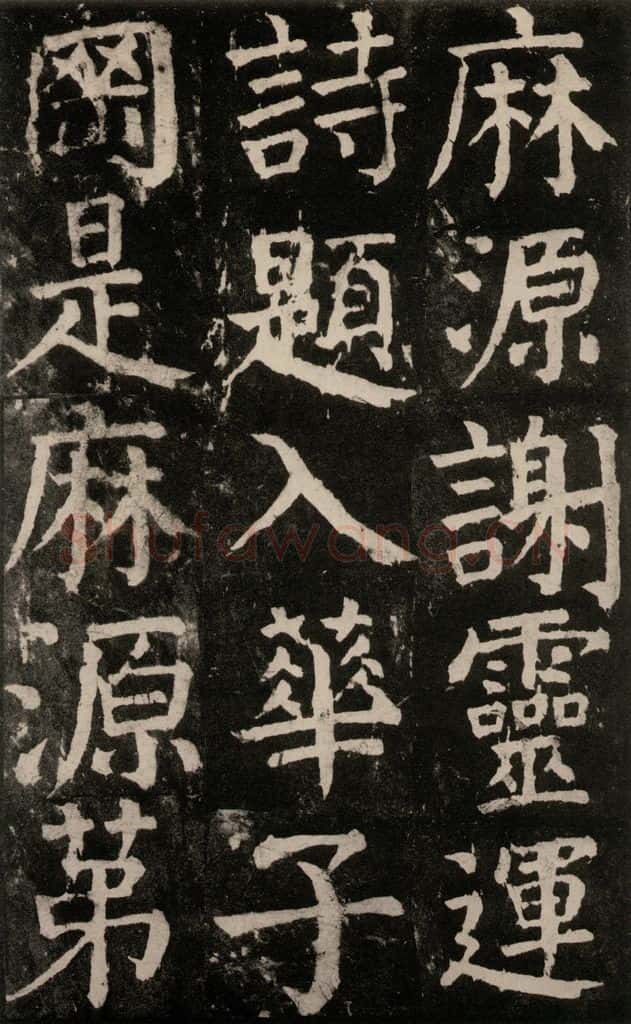 麻源謝靈運
詩題入華子
岡是麻源第
shufawang.cn